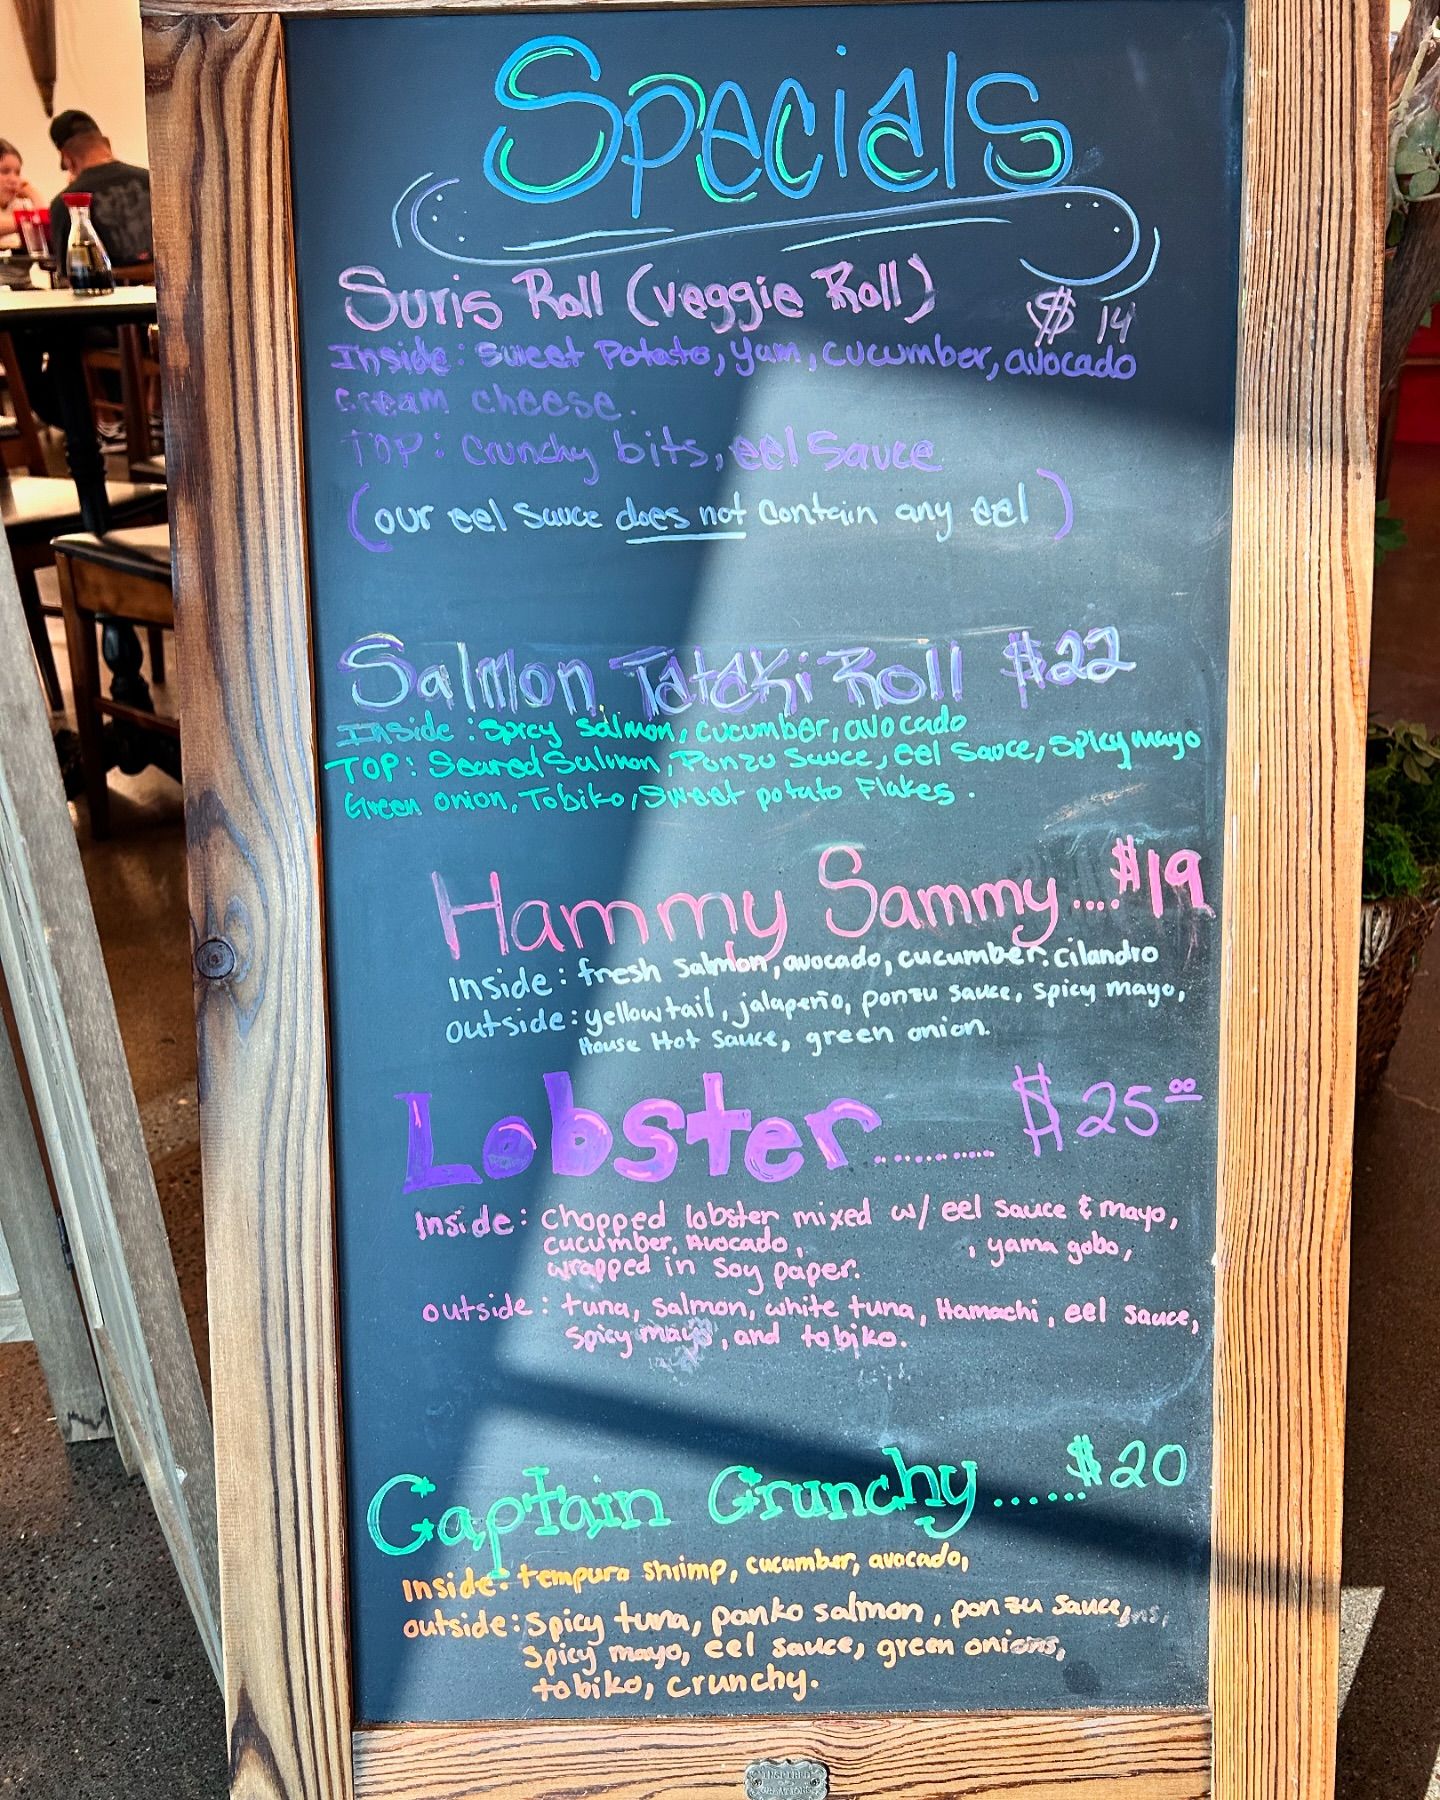 Specials
Suris Roll (veggie Roll) $14
Inside: Sweet Potato, yam, cucumber, avocado
cream cheese.
TOP: Crunchy bits, eel Sauce
(our eel Sauce does not contain any eel)
Salmon Tataki Roll $22
Inside: Spicy Salmon, cucumber, avocado
TOP: Seared Salmon, Ponzu Sauce, eel Sauce, Spicy mayo
Green onion, Tobiko, Sweet potato Flakes.
Hammy Sammy....$19
Inside: fresh salmon, avocado, cucumber. cilandro
outside: yellowtail, jalapeño, ponzu sauce, spicy mayo,
House Hot Sauce, green onion.
Lobster............ $25.00
Inside: Chopped lobster mixed w/ eel sauce & mayo,
cucumber, Avocado, , yama gobo,
wrapped in Soy paper.
outside: tuna, salmon, white tuna, Hamachi, eel sauce,
Spicy mayo, and tobiko.
Captain Crunchy......$20
Inside: tempura shrimp, cucumber, avocado,
outside: Spicy tuna, panko salmon, ponzu sauce,
spicy mayo, eel sauce, green onions,
tobiko, crunchy.